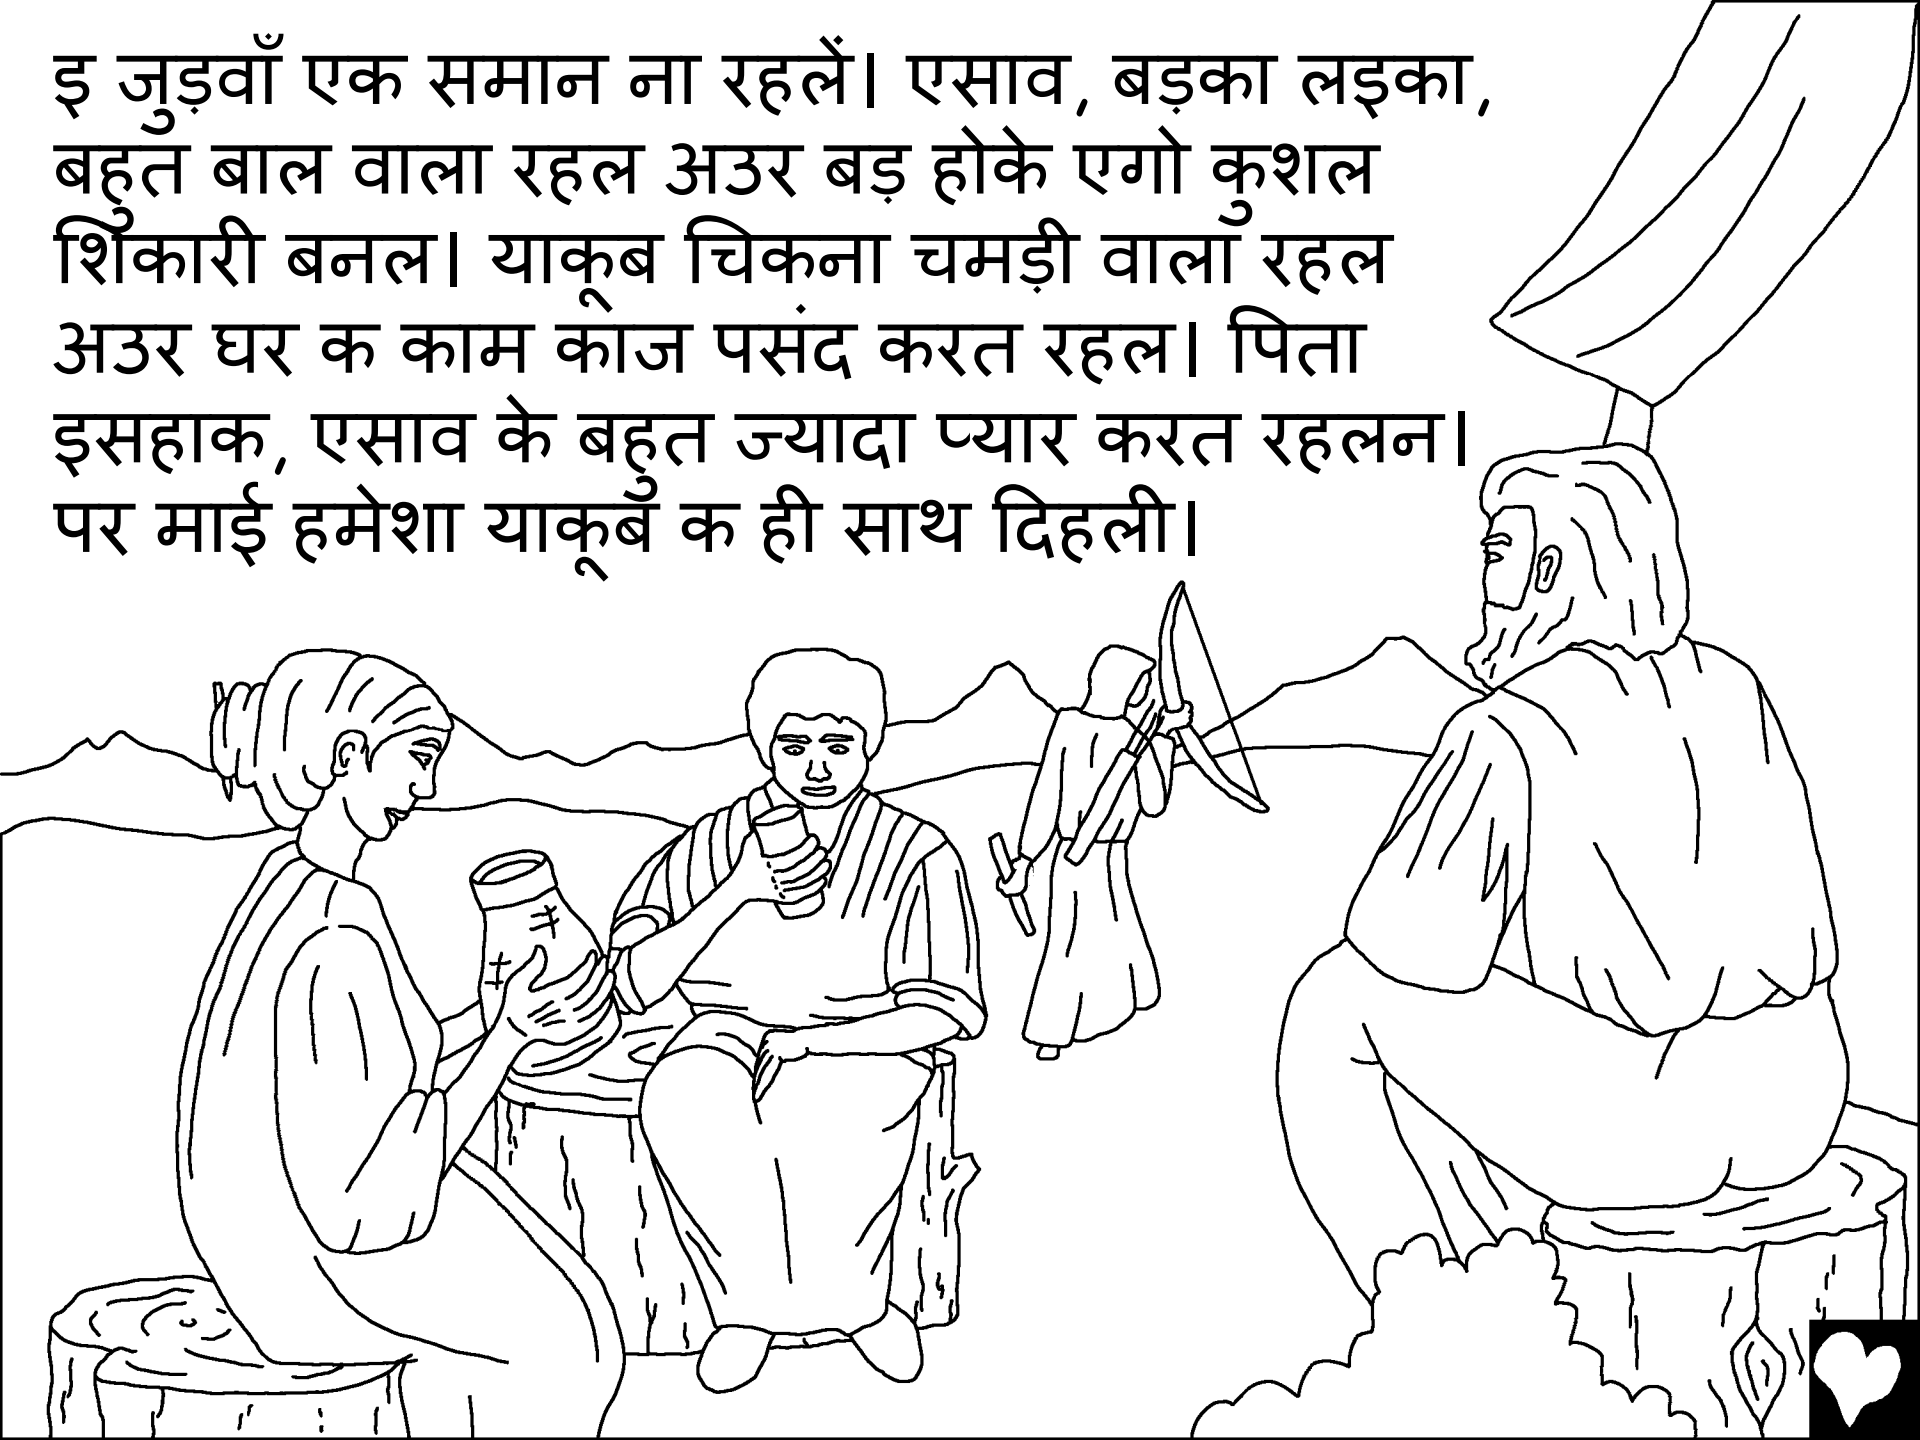 इ जुड़वाँ एक समान ना रहलें। एसाव, बड़का लइका,
बहुत बाल वाला रहल अउर बड़ होके एगो कुशल
शिकारी बनल। याकूब चिकना चमड़ी वाला रहल
अउर घर क काम काज पसंद करत रहल। पिता
इसहाक, एसाव के बहुत ज्यादा प्यार करत रहलन।
पर माई हमेशा याकूब क ही साथ दिहली।